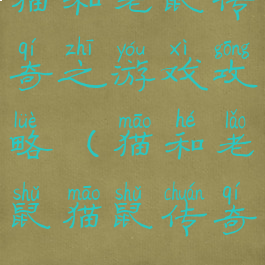 猫和老鼠传
qí zhī yóu xì gōng
奇之游戏攻
lüè māo hé lǎo
略（猫和老
shǔ māo shǔ chuán qí
鼠猫鼠传奇